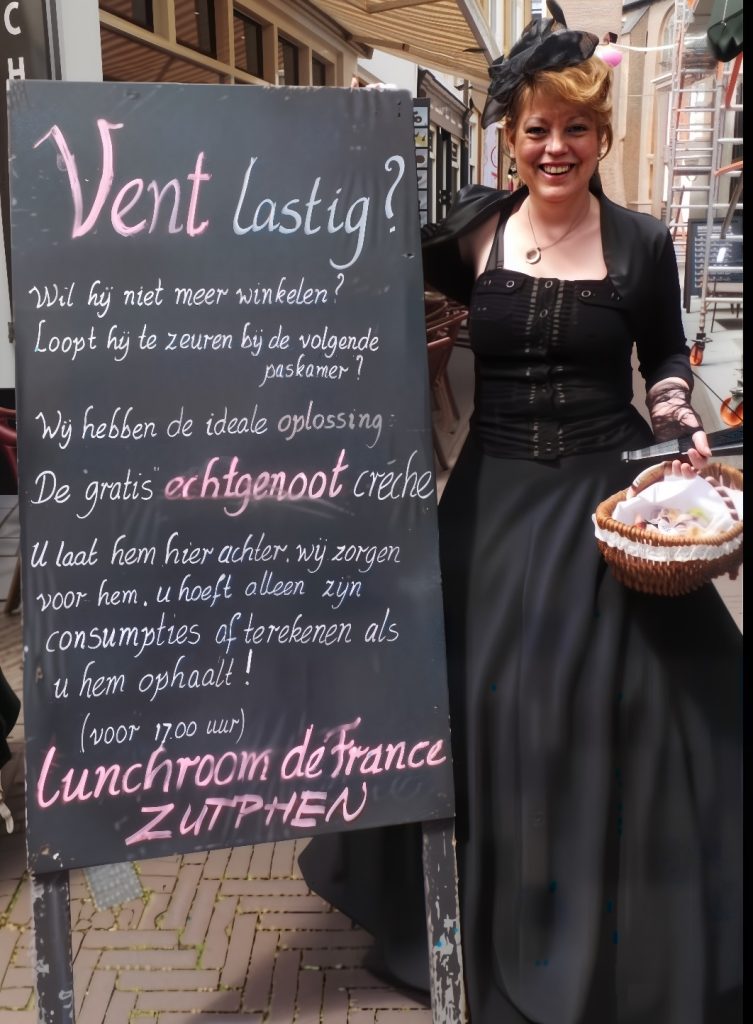 CH
Vent lastig?
Wil hij niet meer winkelen?
Loopt hij te zeuren bij de volgende
paskamer?
Wij hebben de ideale oplossing:
De gratis "echtgenoot crèche
U laat hem hier achter, wij zorgen
voor hem, u hoeft alleen zijn
consumpties af terekenen als
u hem ophaalt!
(voor 17.00 uur)
Lunchroom de France
ZUTPHEN